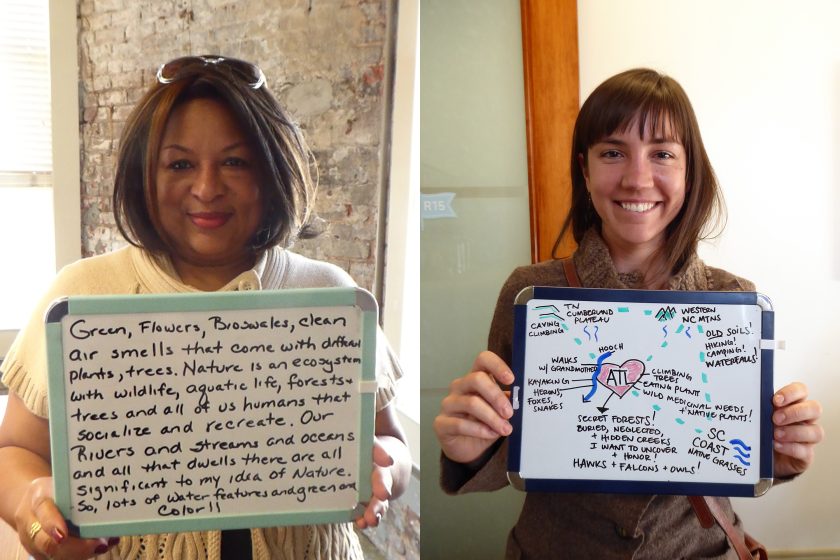 Green, Flowers, Bioswales, clean
air smells that come with different
plants, trees. Nature is an ecosystem
with wildlife, aquatic life, forests+
trees and all of us humans that
socialize and recreate. Our
Rivers and streams and oceans
and all that dwells there are all
significant to my idea of Nature.
So, lots of water features and green and
Color!!
R15
TN
CUMBERLAND
PLATEAU
CAVING
CLIMBING
WESTERN
NC MTNS
OLD SOILS!
HIKING!
CAMPING!
WATERFALLS!
HOOCH
WALKS
W/ GRANDMOTHER
KAYAKING
HERONS,
FOXES,
SNAKES
ATL
CLIMBING
TREES
EATING PLANT
WILD MEDICINAL WEEDS
+ NATIVE PLANTS!
SECRET FORESTS!
BURIED, NEGLECTED,
+ HIDDEN CREEKS
I WANT TO UNCOVER
+ HONOR!
HAWKS + FALCONS + OWLS!
SC
COAST
NATIVE GRASSES